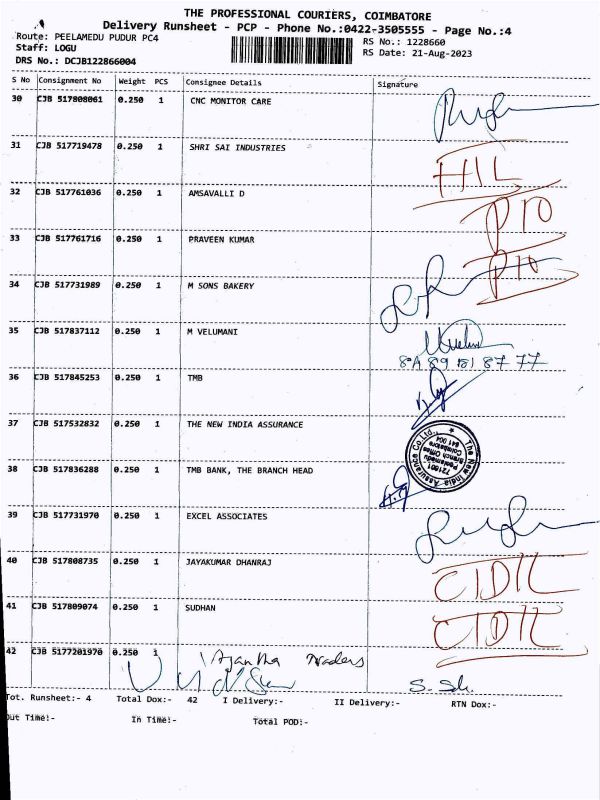 THE PROFESSIONAL COURIERS, COIMBATORE
Delivery Runsheet - PCP - Phone No.:0422-3505555 - Page No.:4
Route: PEELAMEDU PUDUR PC4
RS No.: 1228660
Staff: LOGU
RS Date: 21-Aug-2023
DRS No.: DCJB122866004
S No Consignment No Weight PCS Consignee Details Signature
30 CJB 517808061 0.250 1 CNC MONITOR CARE
31 CJB 517719478 0.250 1 SHRI SAI INDUSTRIES
32 CJB 517761036 0.250 1 AMSAVALLI D
33 CJB 517761716 0.250 1 PRAVEEN KUMAR
34 CJB 517731989 0.250 1 M SONS BAKERY
35 CJB 517837112 0.250 1 M VELUMANI
36 CJB 517845253 0.250 1 TMB
37 CJB 517532832 0.250 1 THE NEW INDIA ASSURANCE
The New India Assurance Co Ltd.,
721601
Peelamedu
Branch Office
Coimbatore
641 004
38 CJB 517836288 0.250 1 TMB BANK, THE BRANCH HEAD
39 CJB 517731970 0.250 1 EXCEL ASSOCIATES
40 CJB 517808735 0.250 1 JAYAKUMAR DHANRAJ
41 CJB 517809074 0.250 1 SUDHAN
42 CJB 5177201970 0.250 1
Ajantha Traders
Tot. Runsheet:- 4 Total Dox:- 42 I Delivery:- II Delivery:- RTN Dox:-
Out Time:- In Time:- Total POD:-